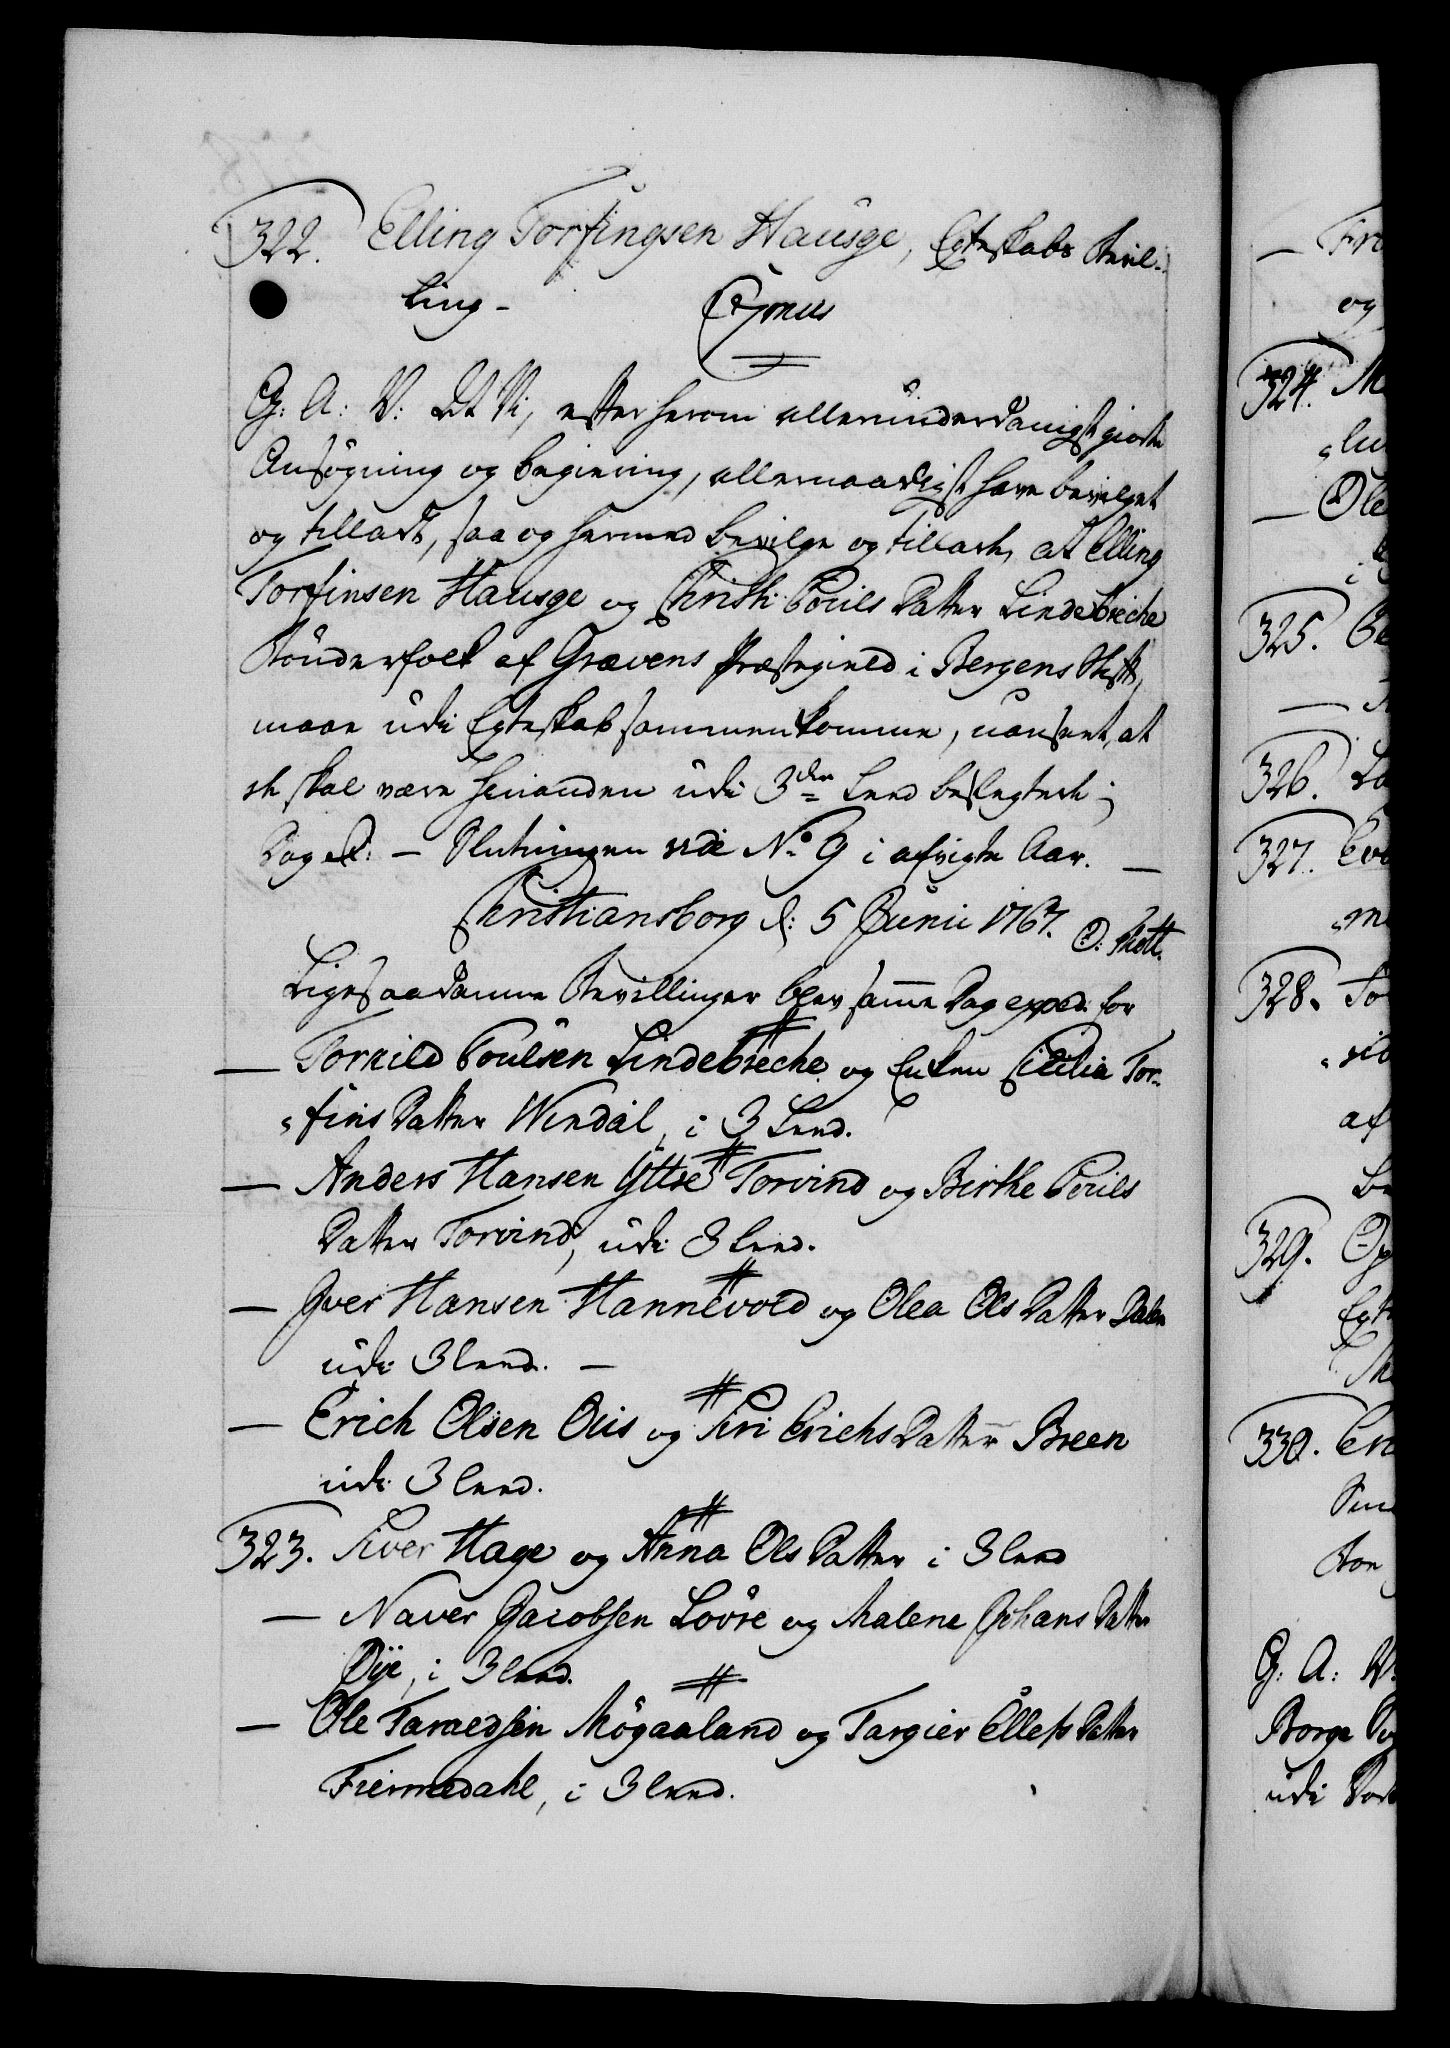 322. Elling Torfingsen Hausge, Egteskabs Bevil-
ling -
C 7mus
G: A: V: At Vi, efter herom allerunderdanigst giorte
Ansøgning og begiering, allernaadigst have bevilget
og tilladt, saa og hermed bevilge og tillade, at Elling
Torfinsen Hausge og Christi Pouls Datter Lindebreche
Bønderfolk af Gravens Præstegield i Bergens Stift,
maae udi Egteskab sammenkomme, uanseet, at
de skal være hinanden udi 3die Leed beslegtede;
Dog &c: - Slutningen vide No 9 i afvigte Aar. —
Christiansborg d: 5 Junii 1767. O: Thott.
Ligesaadanne Bevillinger blev samme Dag exped: for
— Torkild Poulsen Lindebreche og Enken Cicilia Tor-
fins Datter Windal, i 3 Leed.
— Anders Hansen Yttre Torvind og Birthe Pouls
Datter Torvind, udi 3 leed.
— Iver Hansen Hannevold og Olea Ols Datter Dale
udi 3 leed. —
— Erich Olsen Ous og Siri Erichs Datter Breen
udi 3 leed.
323. Siver Hage og Anna Ols Datter i 3 leed
— Naver Jacobsen Lovre og Malene Johans Datter
Øye, i 3 leed.
— Ole Taraldsen Møgaaland og Targier Ellefs Datter
Fiermedahl, i 3 leed.
— Fr
og
324. M
— Ole
325.
326.
327.
328.
af
329.
330.
G: A: V:
Borge
udi